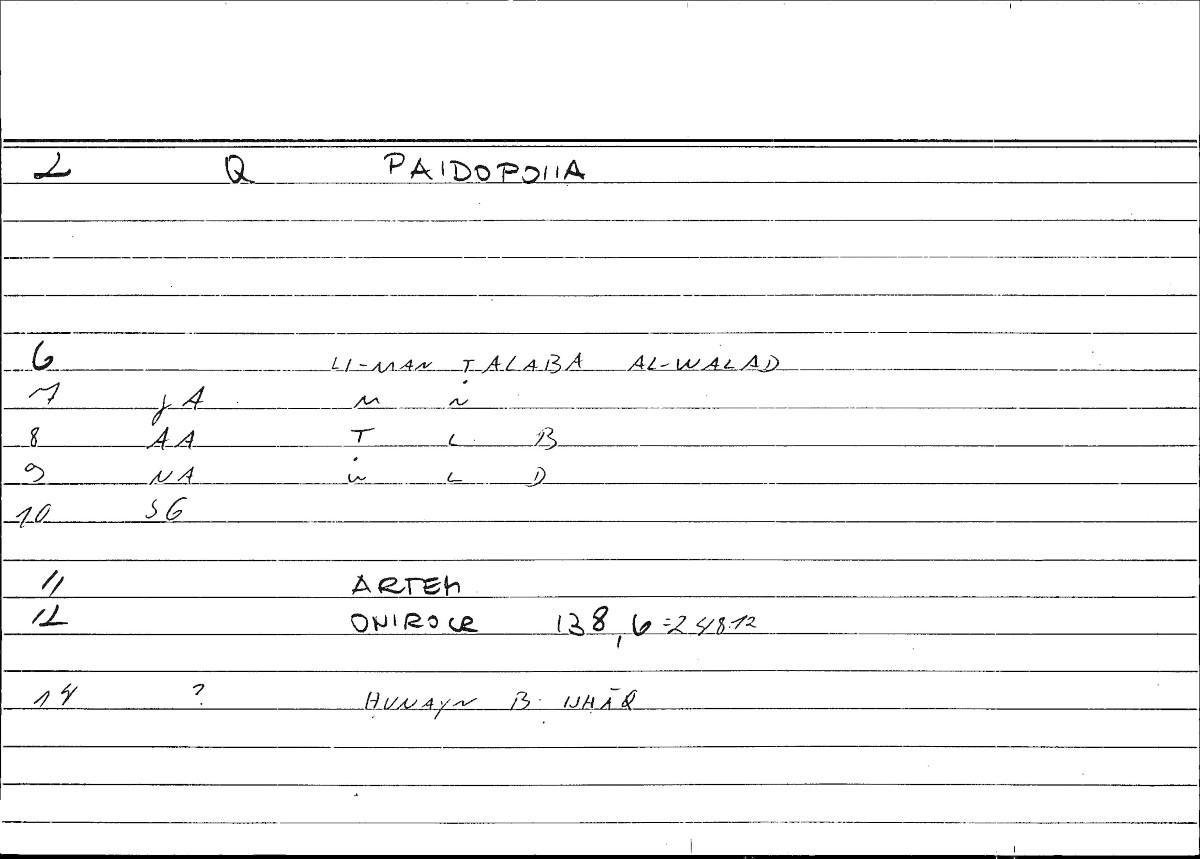 2 Q PAIDOPOIIA
6 LI-MAN ṬALABA AL-WALAD
7 JA M N
8 AA Ṭ L B
9 NA W L D
10 SG
11 ARTEM
12 ONIROCR 138,6=248.12
14 ? ḤUNAYN B. ISḤĀQ